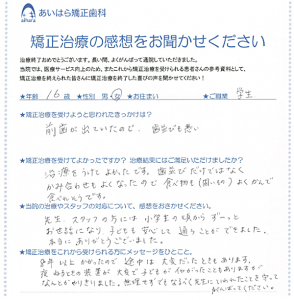 あいはら矯正歯科
矯正治療の感想をお聞かせください
治療終了おめでとうございます。長い間、よくがんばって通院していただきました。
当院では、医療サービス向上のため、またこれから矯正治療を受けられる患者さんの参考資料として、
矯正治療を終えられた皆さんに矯正治療を終了した喜びの声を聞かせてください!
★年齢 16歳 ★性別 男・女 ★お住まい ★ご職業 学生
★矯正治療を受けようと思われたきっかけは?
前歯が出ていたので、歯並びも悪い
★矯正治療を受けてよかったですか? 治療結果にはご満足いただけましたか?
治療をうけてよかたです。歯並びだけではなく
かみ合わせもよくなったので食べ物(固いもの)よくかんで
食べれそうです。
★当院の治療やスタッフの対応について、感想をお書きください。
先生、スタッフの方には小学生の頃からずーっと
お世話になり 子どもも安心して通うことができました。
本当にありがとうございました。
★矯正治療をこれから受けられる方にメッセージをひとこと。
途中は大変だったこともあります。
夜ねるときの装置が大変で子どもが
なんとかやりきりました。無理せずでもなるべく先生にいわれたことを守って
がんばってください。